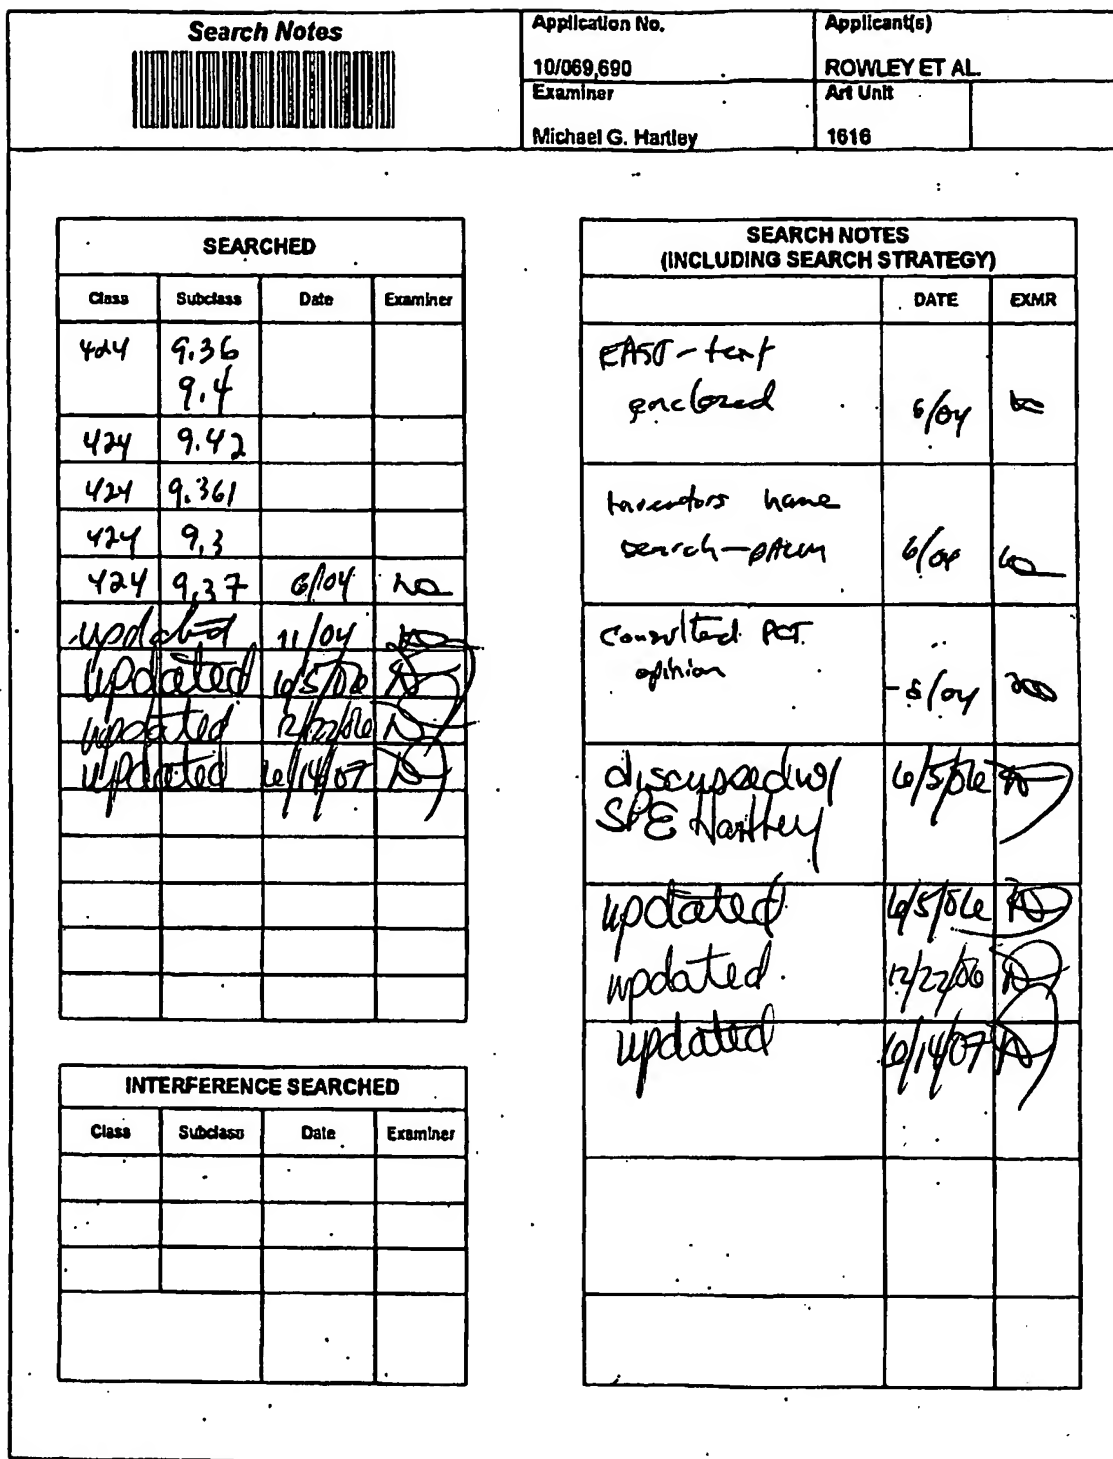 Search Notes
Application No.
Applicant(s)
10/069,690
ROWLEY ET AL.
Examiner
Art Unit
Michael G. Hartley
1616
SEARCHED
Class Subclass Date Examiner
424 9.36
9.4
424 9.42
424 9.361
424 9.3
424 9.37 6/04
updated 11/04
updated 6/5/06
updated 12/22/06
updated 6/14/07
INTERFERENCE SEARCHED
Class Subclass Date Examiner
SEARCH NOTES
(INCLUDING SEARCH STRATEGY)
DATE EXMR
EAST - text
enclosed 6/04
Inventors name
search - PALM 6/04
Consulted PCT
opinion 6/04
discussed w/ 6/5/06
SPE Hartley
updated 6/5/06
updated 12/22/06
updated 6/14/07